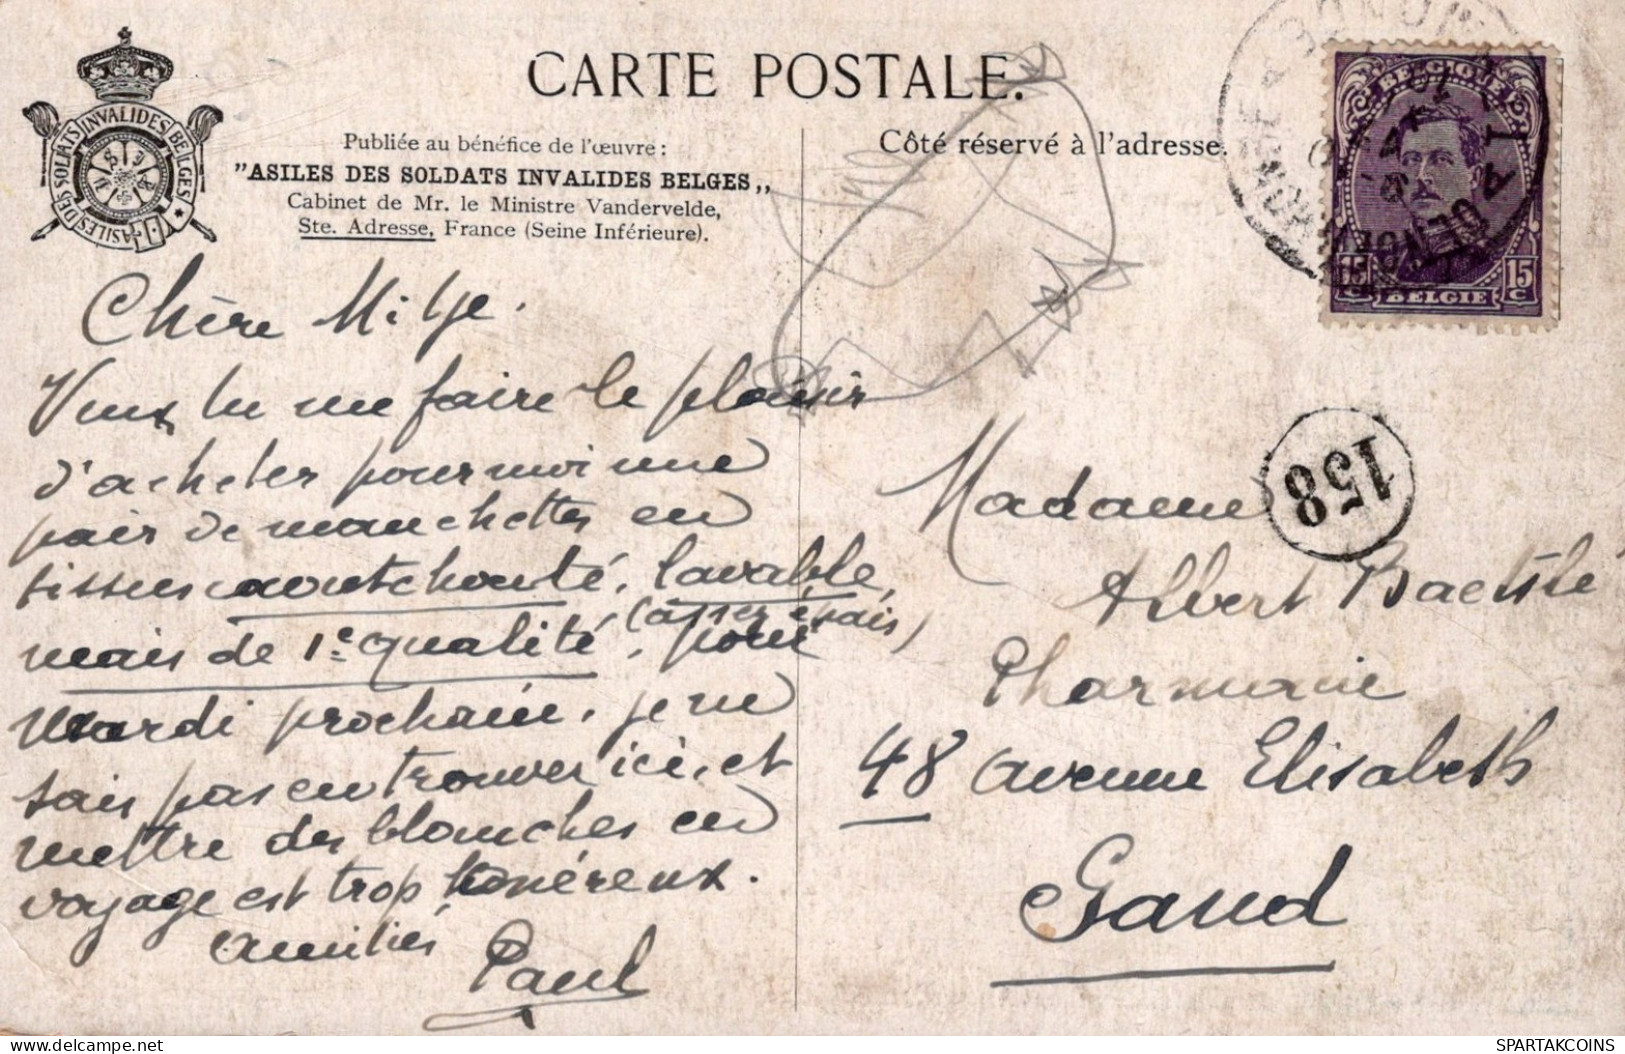 CARTE POSTALE.
ASILES DES SOLDATS INVALIDES BELGES
Publiée au bénéfice de l'œuvre :
"ASILES DES SOLDATS INVALIDES BELGES„
Cabinet de Mr. le Ministre Vandervelde,
Ste. Adresse, France (Seine Inférieure).
Côté réservé à l'adresse.
BELGIQUE
15 C
BELGIE
15 C
158
Chère
Veux tu me faire le plaisir
d'acheter pour moi une
pair de manchettes en
tissus caoutchouté, lavable,
(assez épais)
mais de 1e qualité, pour
mardi prochain, je ne
sais pas en trouver ici, et
mettre des blanches en
voyage est trop onéreux.
Amitiés
Paul
Madame
Albert
Pharmacie
48 avenue Elisabeth
Gand
SPARTAKCOINS